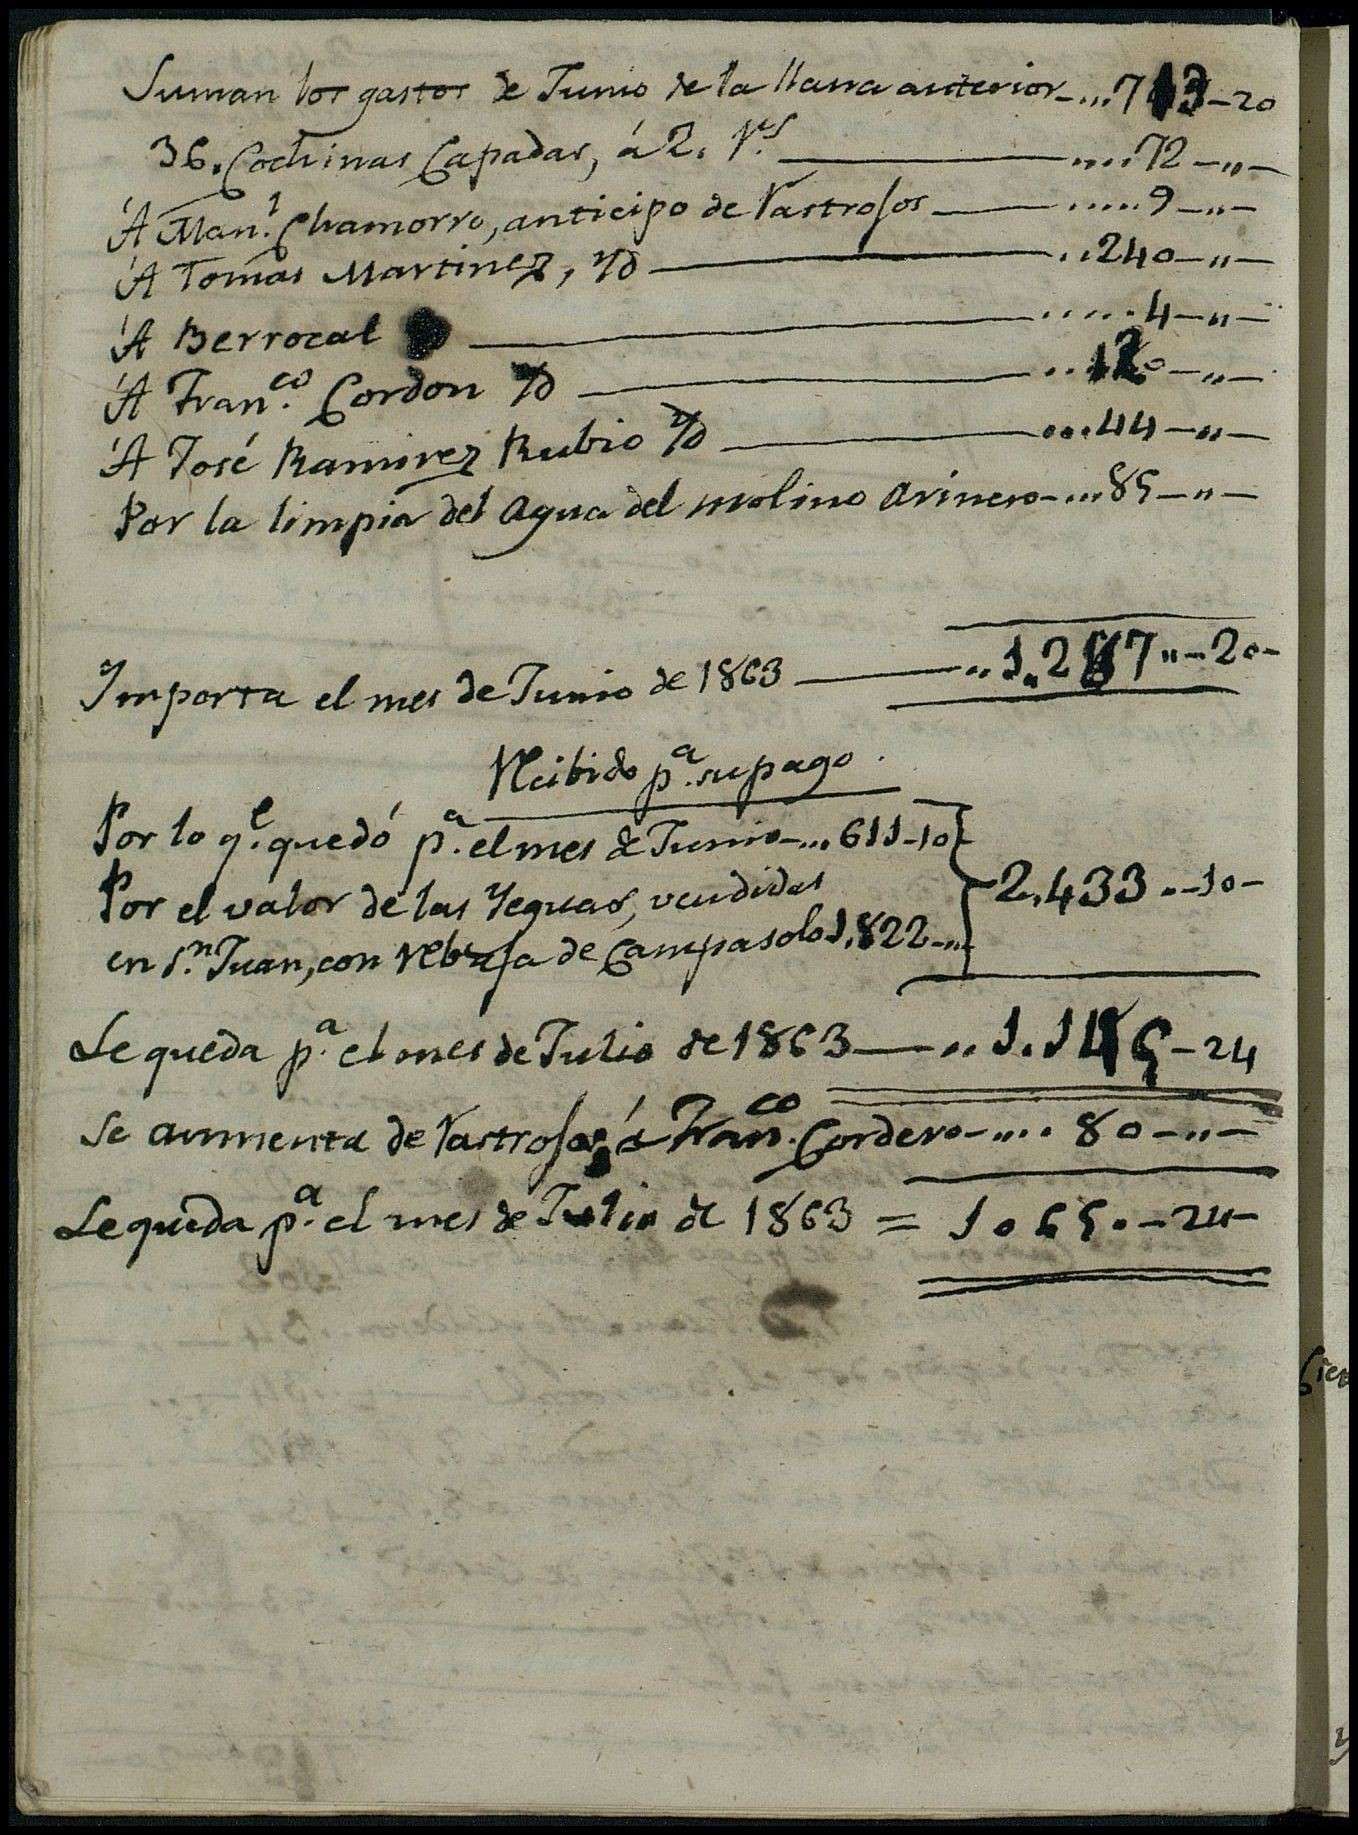 Suman los gastos de Junio de la llana anterior-...713-20
36. Cochinas Capadas, á 2. rs. ....72-"-
Á Manl. Chamorro, anticipo de rastrojos .....9-"-
Á Tomas Martinez, yd ..240-"-
Á Berrocal .....4-"-
Á Franco. Cordon yd ..120-"-
Á José Ramirez Rubio yd ...44-"-
Por la limpia del agua del molino arinero-...85-"-
Ymporta el mes de Junio de 1863 ..1.287"-20-
Recibido pa. su pago.
Por lo qe. quedó pa. el mes de Junio-...611-10
Por el valor de las Yeguas, vendidas
en Sn. Juan, con rebaja de Campasolo 1.822-"-
2.433.-10-
Le queda pa. el mes de Julio de 1863 ..1.145-24
Se aumenta de rastrojos, á Franco. Cordero-.... 80-"-
Le queda pa. el mes de Julio de 1863 = 1.065.-24-